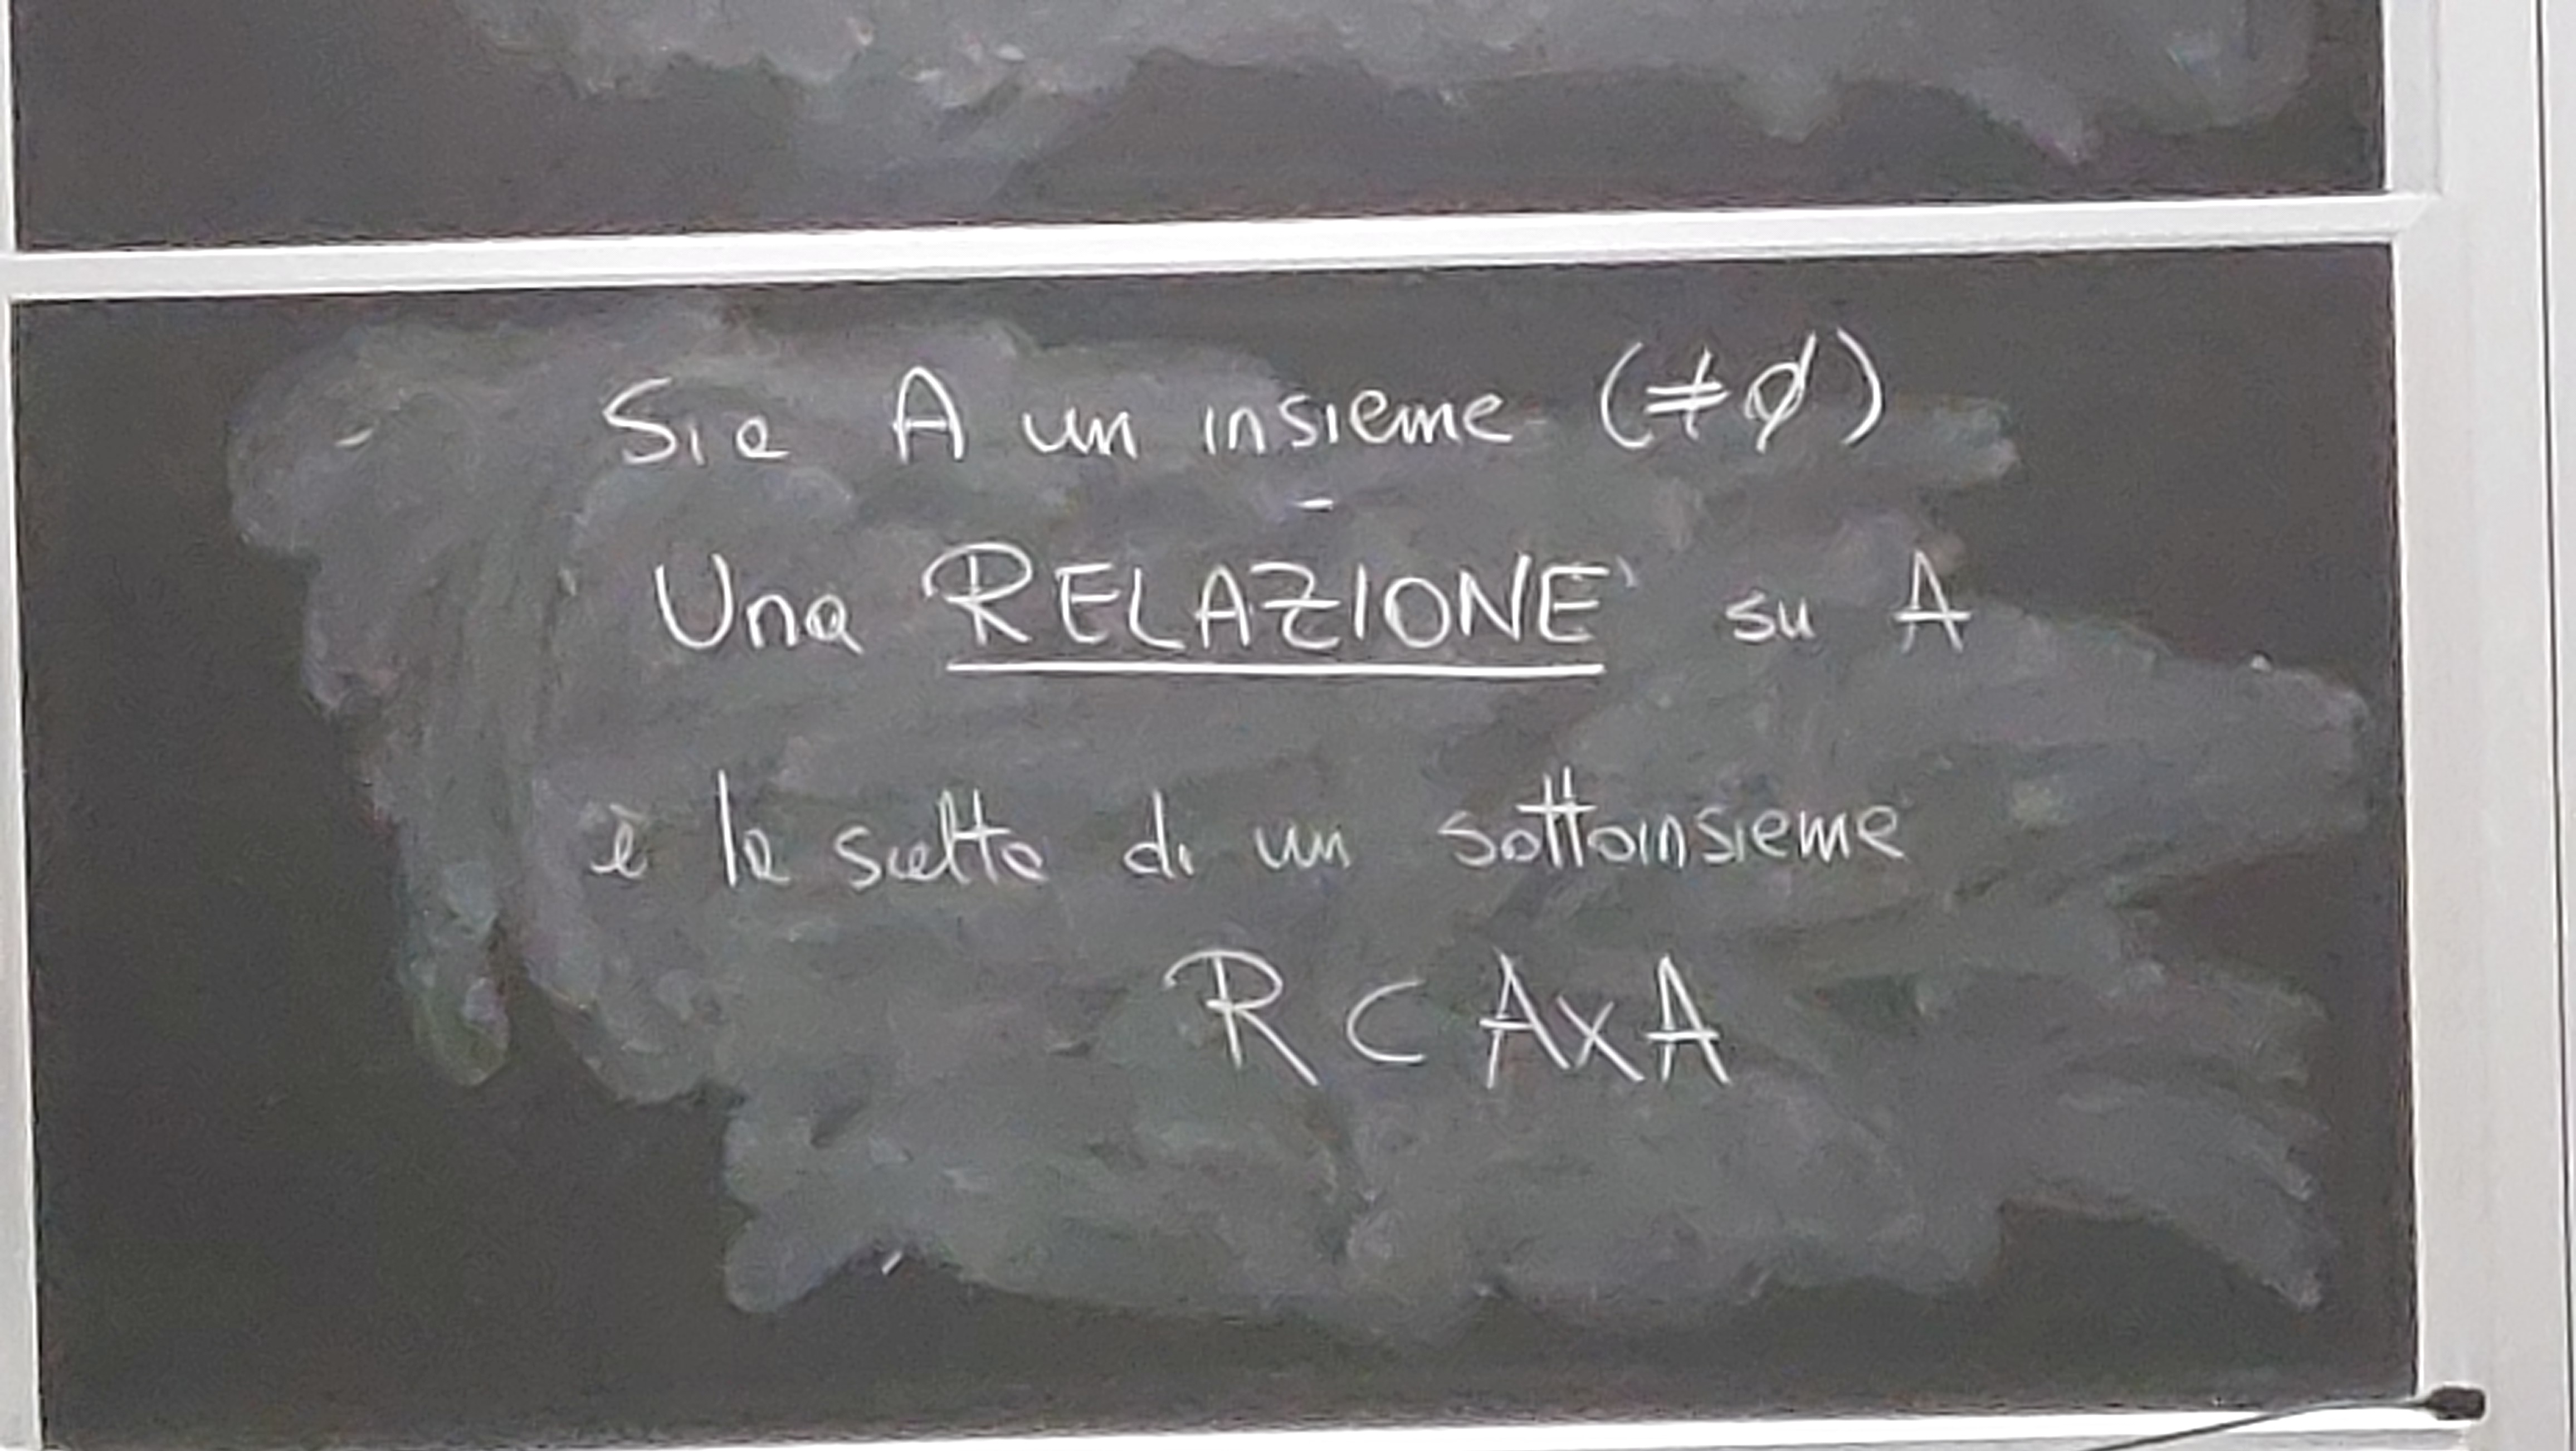 Sia A un insieme (≠∅)
Una RELAZIONE su A
è la scelta di un sottoinsieme
R ⊂ A×A